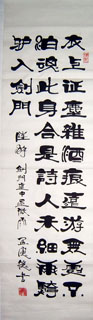 衣上征塵雜酒痕遠游無處不
消魂此身合是詩人未細雨騎
驴入劍門
陸游 劍門道中遇微雨